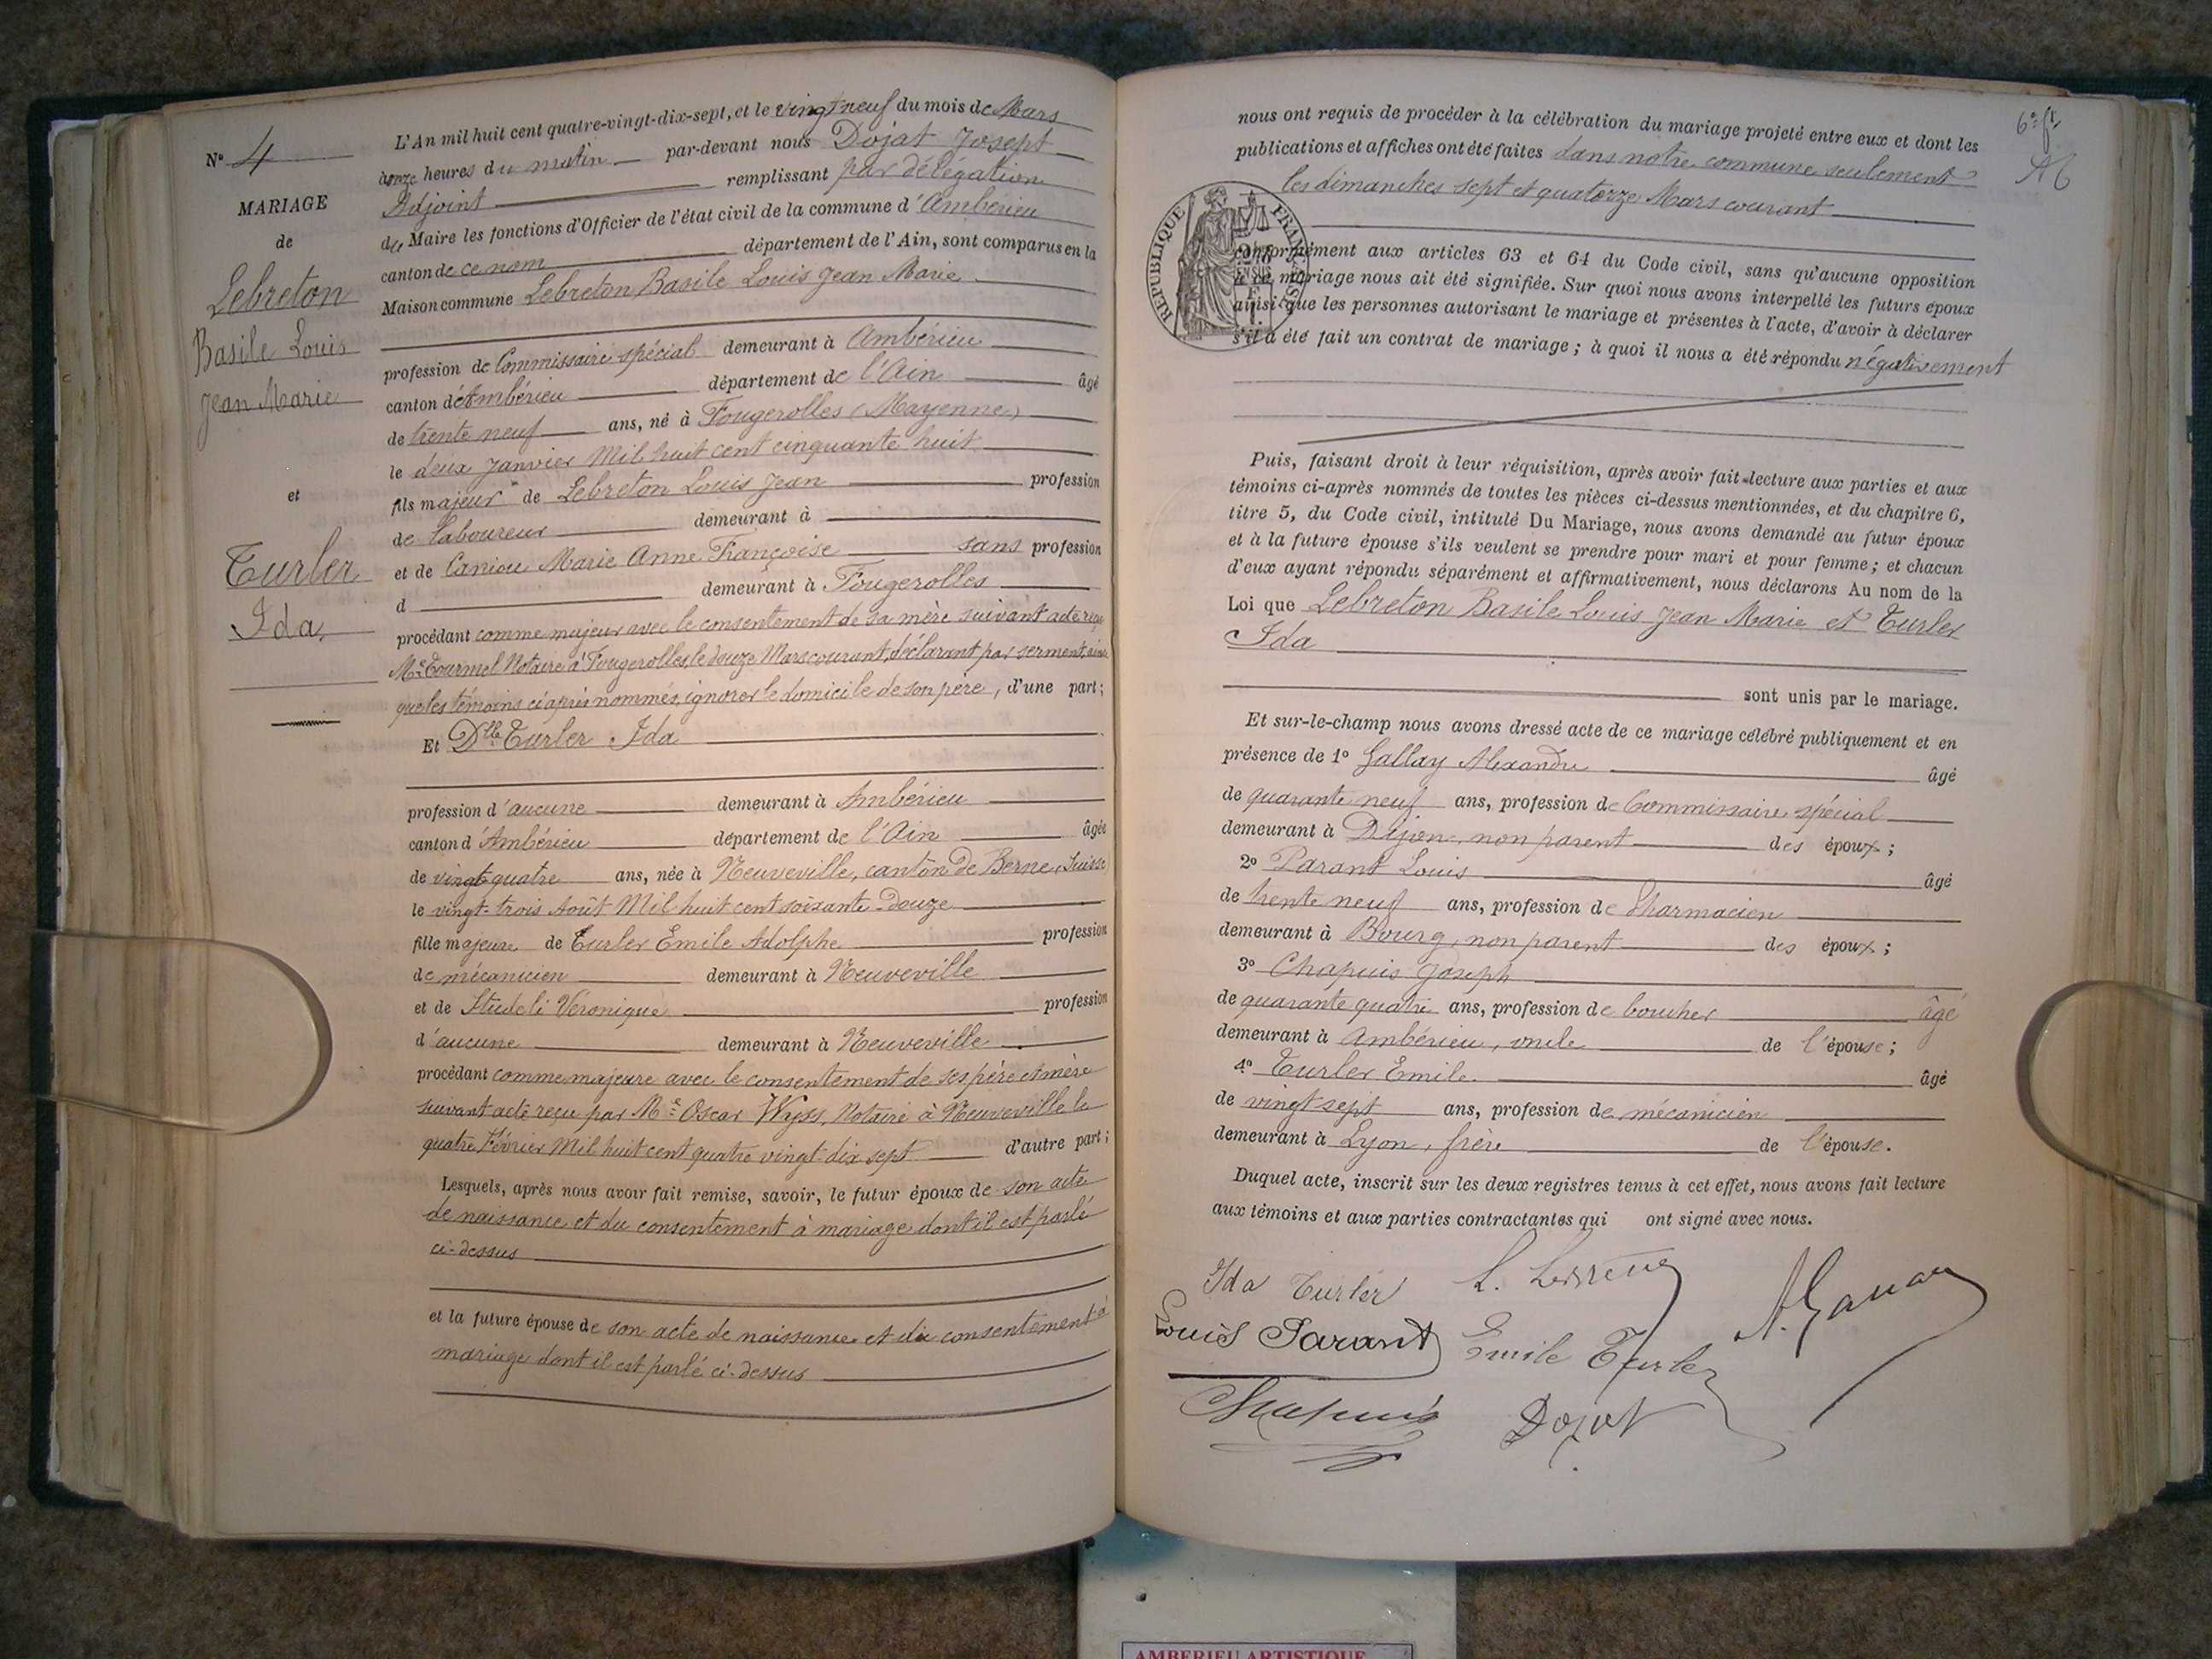 N° 4
MARIAGE
de
Lebreton
Basile Louis
Jean Marie
et
Turler
Ida
L'An mil huit cent quatre-vingt-dix-sept, et le vingt neuf du mois de Mars
à onze heures du matin par-devant nous Dojat Josept
Adjoint remplissant par délégation
du Maire les fonctions d'Officier de l'état civil de la commune d'Ambérieu
canton de ce nom département de l'Ain, sont comparus en la
Maison commune Lebreton Basile Louis Jean Marie
profession de Commissaire spécial demeurant à Ambérieu
canton d'Ambérieu département de l'Ain âgé
de trente neuf ans, né à Fougerolles (Mayenne)
le deux Janvier Mil huit cent cinquante huit
fils majeur de Lebreton Louis Jean profession
de laboureur demeurant à
et de Caniou Marie Anne Françoise sans profession
d demeurant à Fougerolles
procédant comme majeur avec le consentement de sa mère suivant acte reçu
Me Tourmel Notaire à Fougerolles, le douze Mars courant, déclarant par serment, ainsi
que les témoins ci après nommés, ignorer le domicile de son père, d'une part;
Et Dlle Turler Ida
profession d'aucune demeurant à Ambérieu
canton d'Ambérieu département de l'Ain âgée
de vingt quatre ans, née à Neuveville, canton de Berne, Suisse
le vingt-trois Août Mil huit cent soixante-Douze
fille majeure de Turler Emile Adolphe profession
de mécanicien demeurant à Neuveville
et de Studeli Véronique profession
d'aucune demeurant à Neuveville
procédant comme majeure avec le consentement de ses père et mère
suivant acte reçu par Me Oscar Wyss, Notaire à Neuveville le
quatre Février Mil huit cent quatre vingt-dix sept d'autre part;
Lesquels, après nous avoir fait remise, savoir, le futur époux de son acte
de naissance et du consentement à mariage dont il est parlé
ci-dessus
et la future épouse de son acte de naissance et du consentement à
mariage dont il est parlé ci-dessus
nous ont requis de procéder à la célébration du mariage projeté entre eux et dont les
publications et affiches ont été faites dans notre commune seulement
les dimanches sept et quatorze Mars courant
RÉPUBLIQUE FRANÇAISE
conformément aux articles 63 et 64 du Code civil, sans qu'aucune opposition
à ce mariage nous ait été signifiée. Sur quoi nous avons interpellé les futurs époux
ainsi que les personnes autorisant le mariage et présentes à l'acte, d'avoir à déclarer
s'il a été fait un contrat de mariage; à quoi il nous a été répondu négativement
Puis, faisant droit à leur réquisition, après avoir fait lecture aux parties et aux
témoins ci-après nommés de toutes les pièces ci-dessus mentionnées, et du chapitre 6,
titre 5, du Code civil, intitulé Du Mariage, nous avons demandé au futur époux
et à la future épouse s'ils veulent se prendre pour mari et pour femme; et chacun
d'eux ayant répondu séparément et affirmativement, nous déclarons Au nom de la
Loi que Lebreton Basile Louis Jean Marie et Turler
Ida
sont unis par le mariage.
Et sur-le-champ nous avons dressé acte de ce mariage célébré publiquement et en
présence de 1° Gallay Alexandre âgé
de quarante neuf ans, profession de Commissaire spécial
demeurant à Dijon, non parent des époux;
2° Parant Louis âgé
de trente neuf ans, profession de Pharmacien
demeurant à Bourg, non parent des époux;
3° Chapuis Joseph
de quarante quatre ans, profession de boucher âgé
demeurant à Ambérieu, oncle de l'épouse;
4° Turler Emile. âgé
de vingt sept ans, profession de mécanicien
demeurant à Lyon, frère de l'épouse.
Duquel acte, inscrit sur les deux registres tenus à cet effet, nous avons fait lecture
aux témoins et aux parties contractantes qui ont signé avec nous.
Ida Turler
Louis Parant Emile Turler
Chapuis Dojat
AMBERIEU ARTISTIQUE